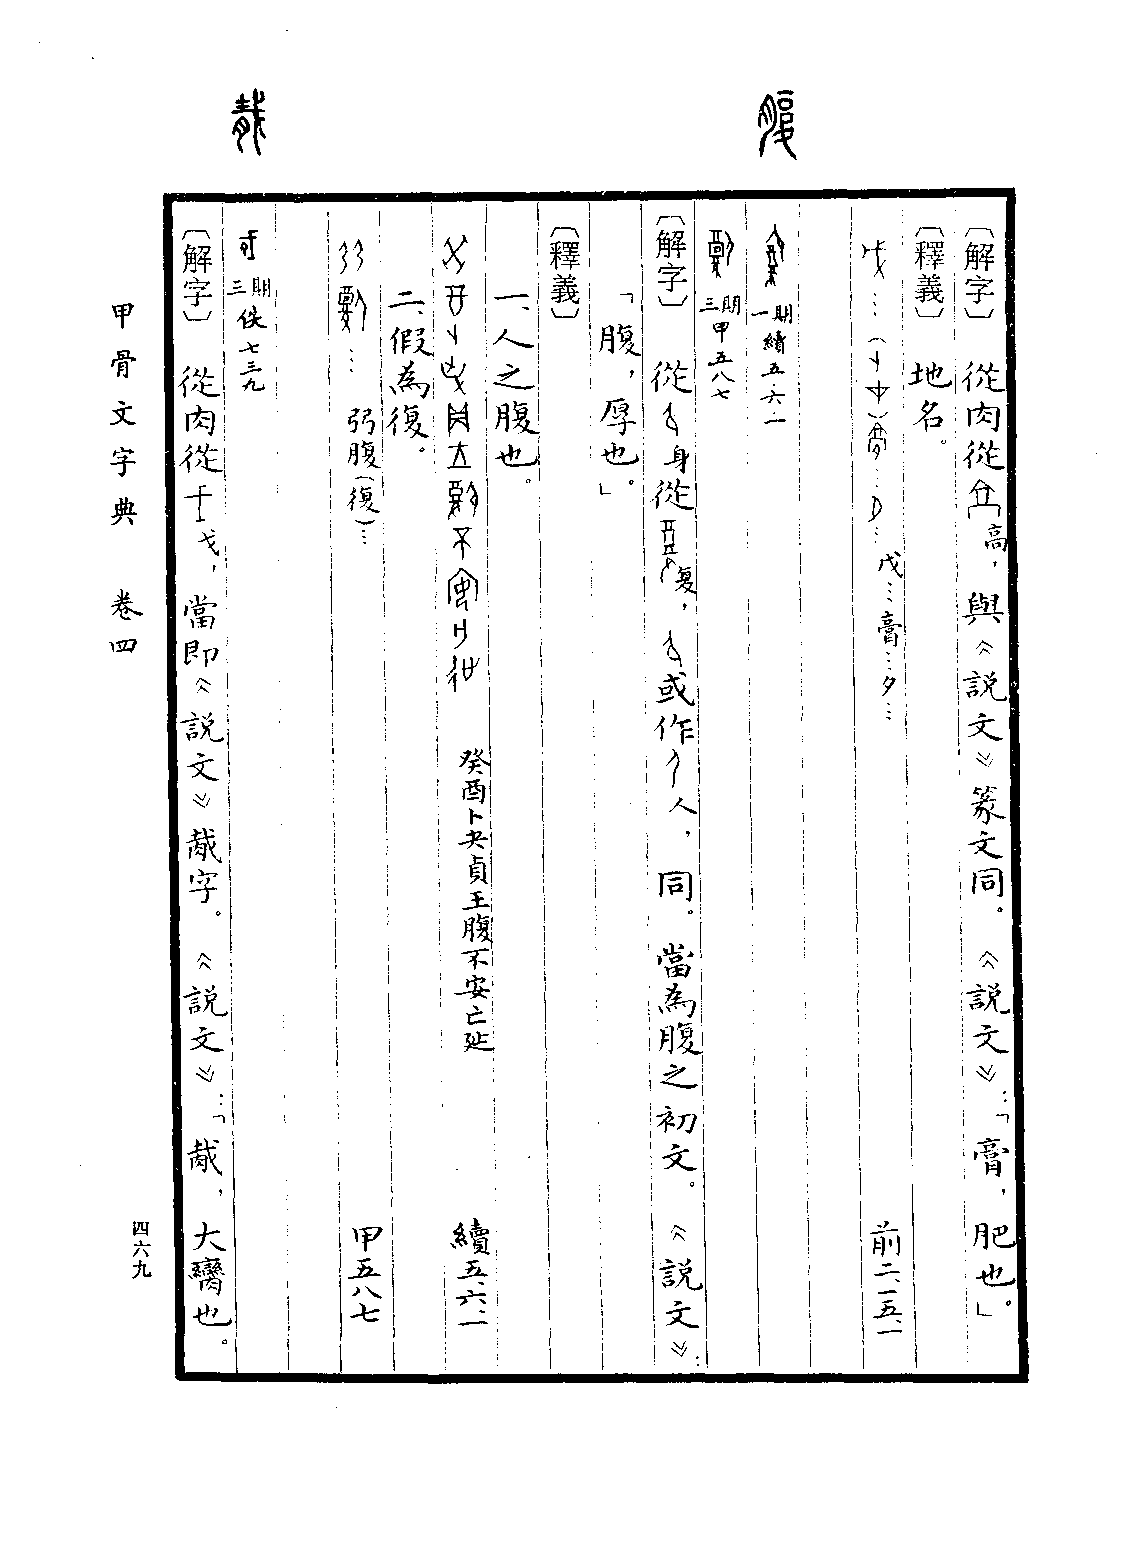 腹
胾
〔解字〕 從肉從高，與《說文》篆文同。《說文》：「膏，肥也。」
〔釋義〕 地名。
戊…膏…夕… 前二、一五、一
一期 續五、六、一
三期 甲五八七
〔解字〕 從身從复，或作人，同。當為腹之初文。《說文》：
「腹，厚也。」
〔釋義〕
一、人之腹也。
癸酉卜央貞王腹不安亡㢟 續五、六、一
二、假為復。
弜腹（復）… 甲五八七
三期 佚七三九
〔解字〕 從肉從戈，當即《說文》胾字。《說文》：「胾，大臠也。
甲骨文字典 卷四
四六九